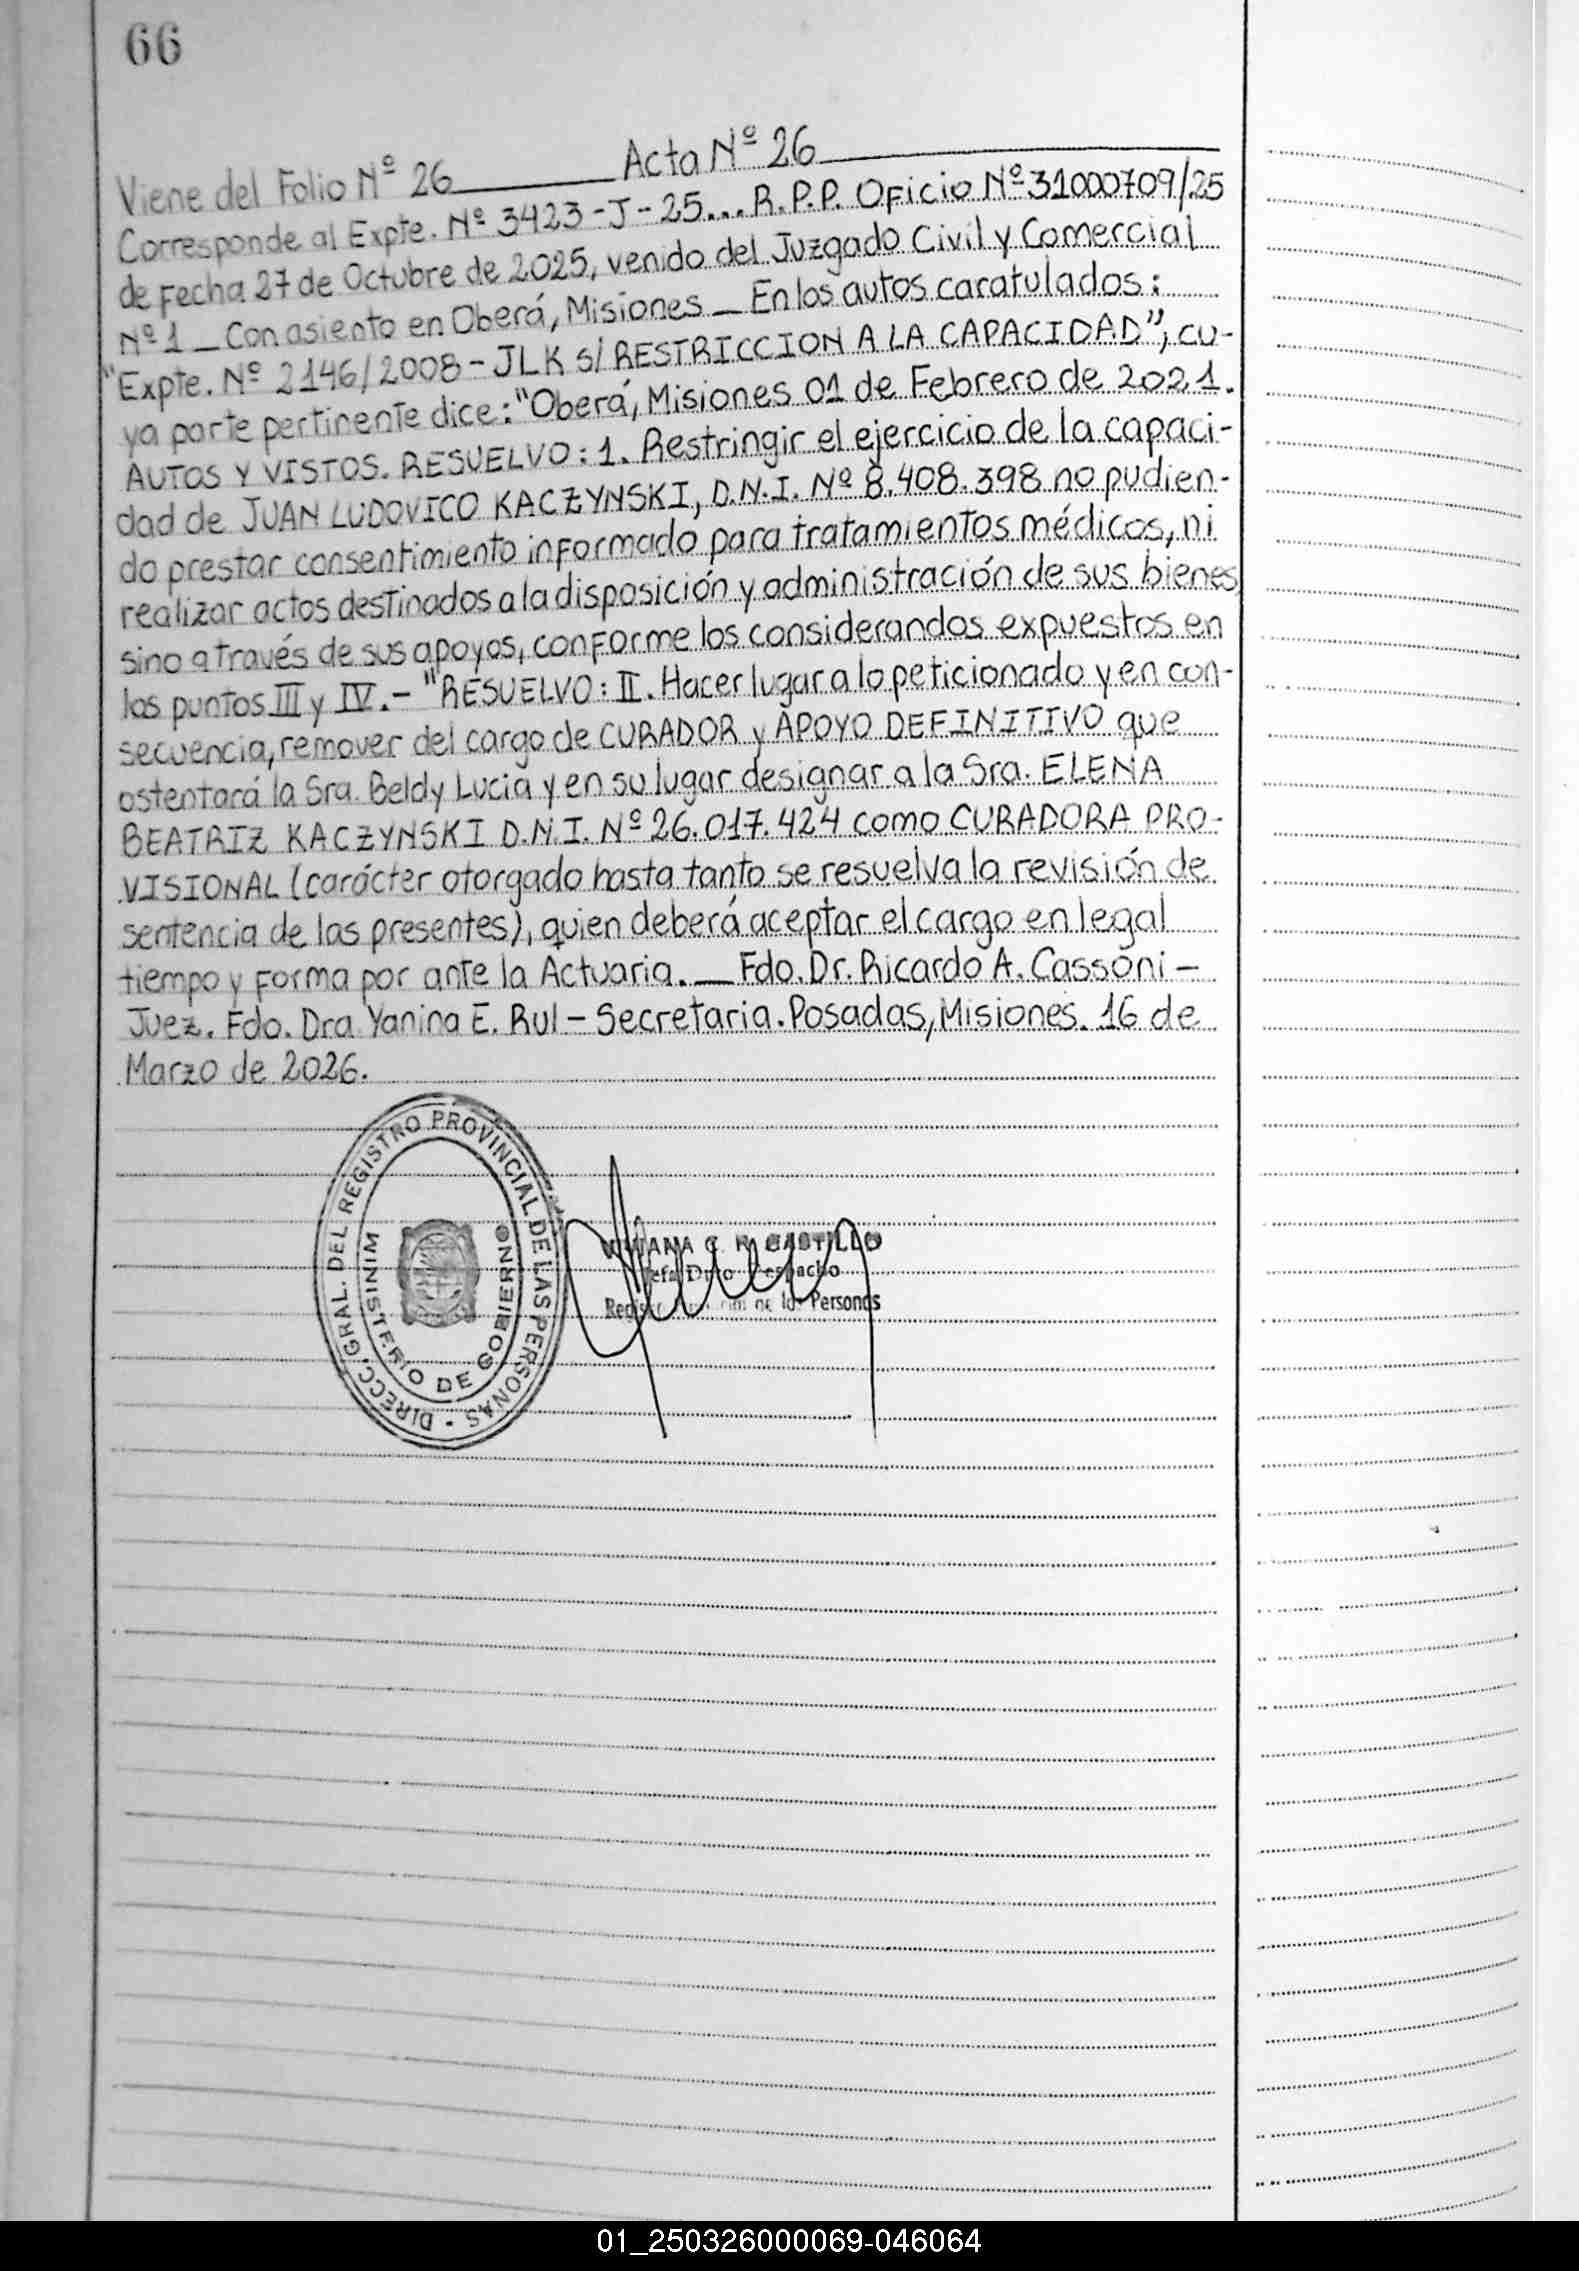 66
Acta Nº 26
Viene del Folio Nº 26
Corresponde al Expte. Nº 3423-J-25... R.P.P. Oficio Nº 31000709/25
de Fecha 27 de Octubre de 2025, venido del Juzgado Civil y Comercial
Nº 1 _ Con asiento en Oberá, Misiones _ En los autos caratulados:
"Expte. Nº 2146/2008 - JLK S/ RESTRICCION A LA CAPACIDAD", cu-
ya parte pertinente dice: "Oberá, Misiones 01 de Febrero de 2021.
AUTOS Y VISTOS. RESUELVO: 1. Restringir el ejercicio de la capaci-
dad de JUAN LUDOVICO KACZYNSKI, D.N.I. Nº 8.408.398 no pudien-
do prestar consentimiento informado para tratamientos médicos, ni
realizar actos destinados a la disposición y administración de sus bienes,
sino a través de sus apoyos, conforme los considerandos expuestos en
los puntos III y IV. - "RESUELVO: II. Hacer lugar a lo peticionado y en con-
secuencia, remover del cargo de CURADOR y APOYO DEFINITIVO que
ostentará la Sra. Beldy Lucia y en su lugar designar a la Sra. ELENA
BEATRIZ KACZYNSKI D.N.I. Nº 26.017.424 como CURADORA PRO-
VISIONAL (carácter otorgado hasta tanto se resuelva la revisión de
sentencia de las presentes), quien deberá aceptar el cargo en legal
tiempo y forma por ante la Actuaria. _ Fdo. Dr. Ricardo A. Cassoni -
Juez. Fdo. Dra Yanina E. Rul - Secretaria. Posadas, Misiones. 16 de
Marzo de 2026.
DIRECC. GRAL. DEL REGISTRO PROVINCIAL DE LAS PERSONAS -
MINISTERIO DE GOBIERNO
CASTILLO
Despacho
Personas
01_250326000069-046064